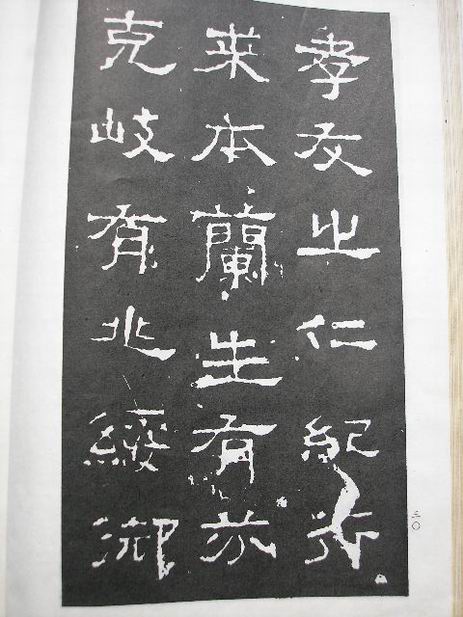 孝友之仁紀行
来本蘭生有芬
克岐有兆綏御
三〇